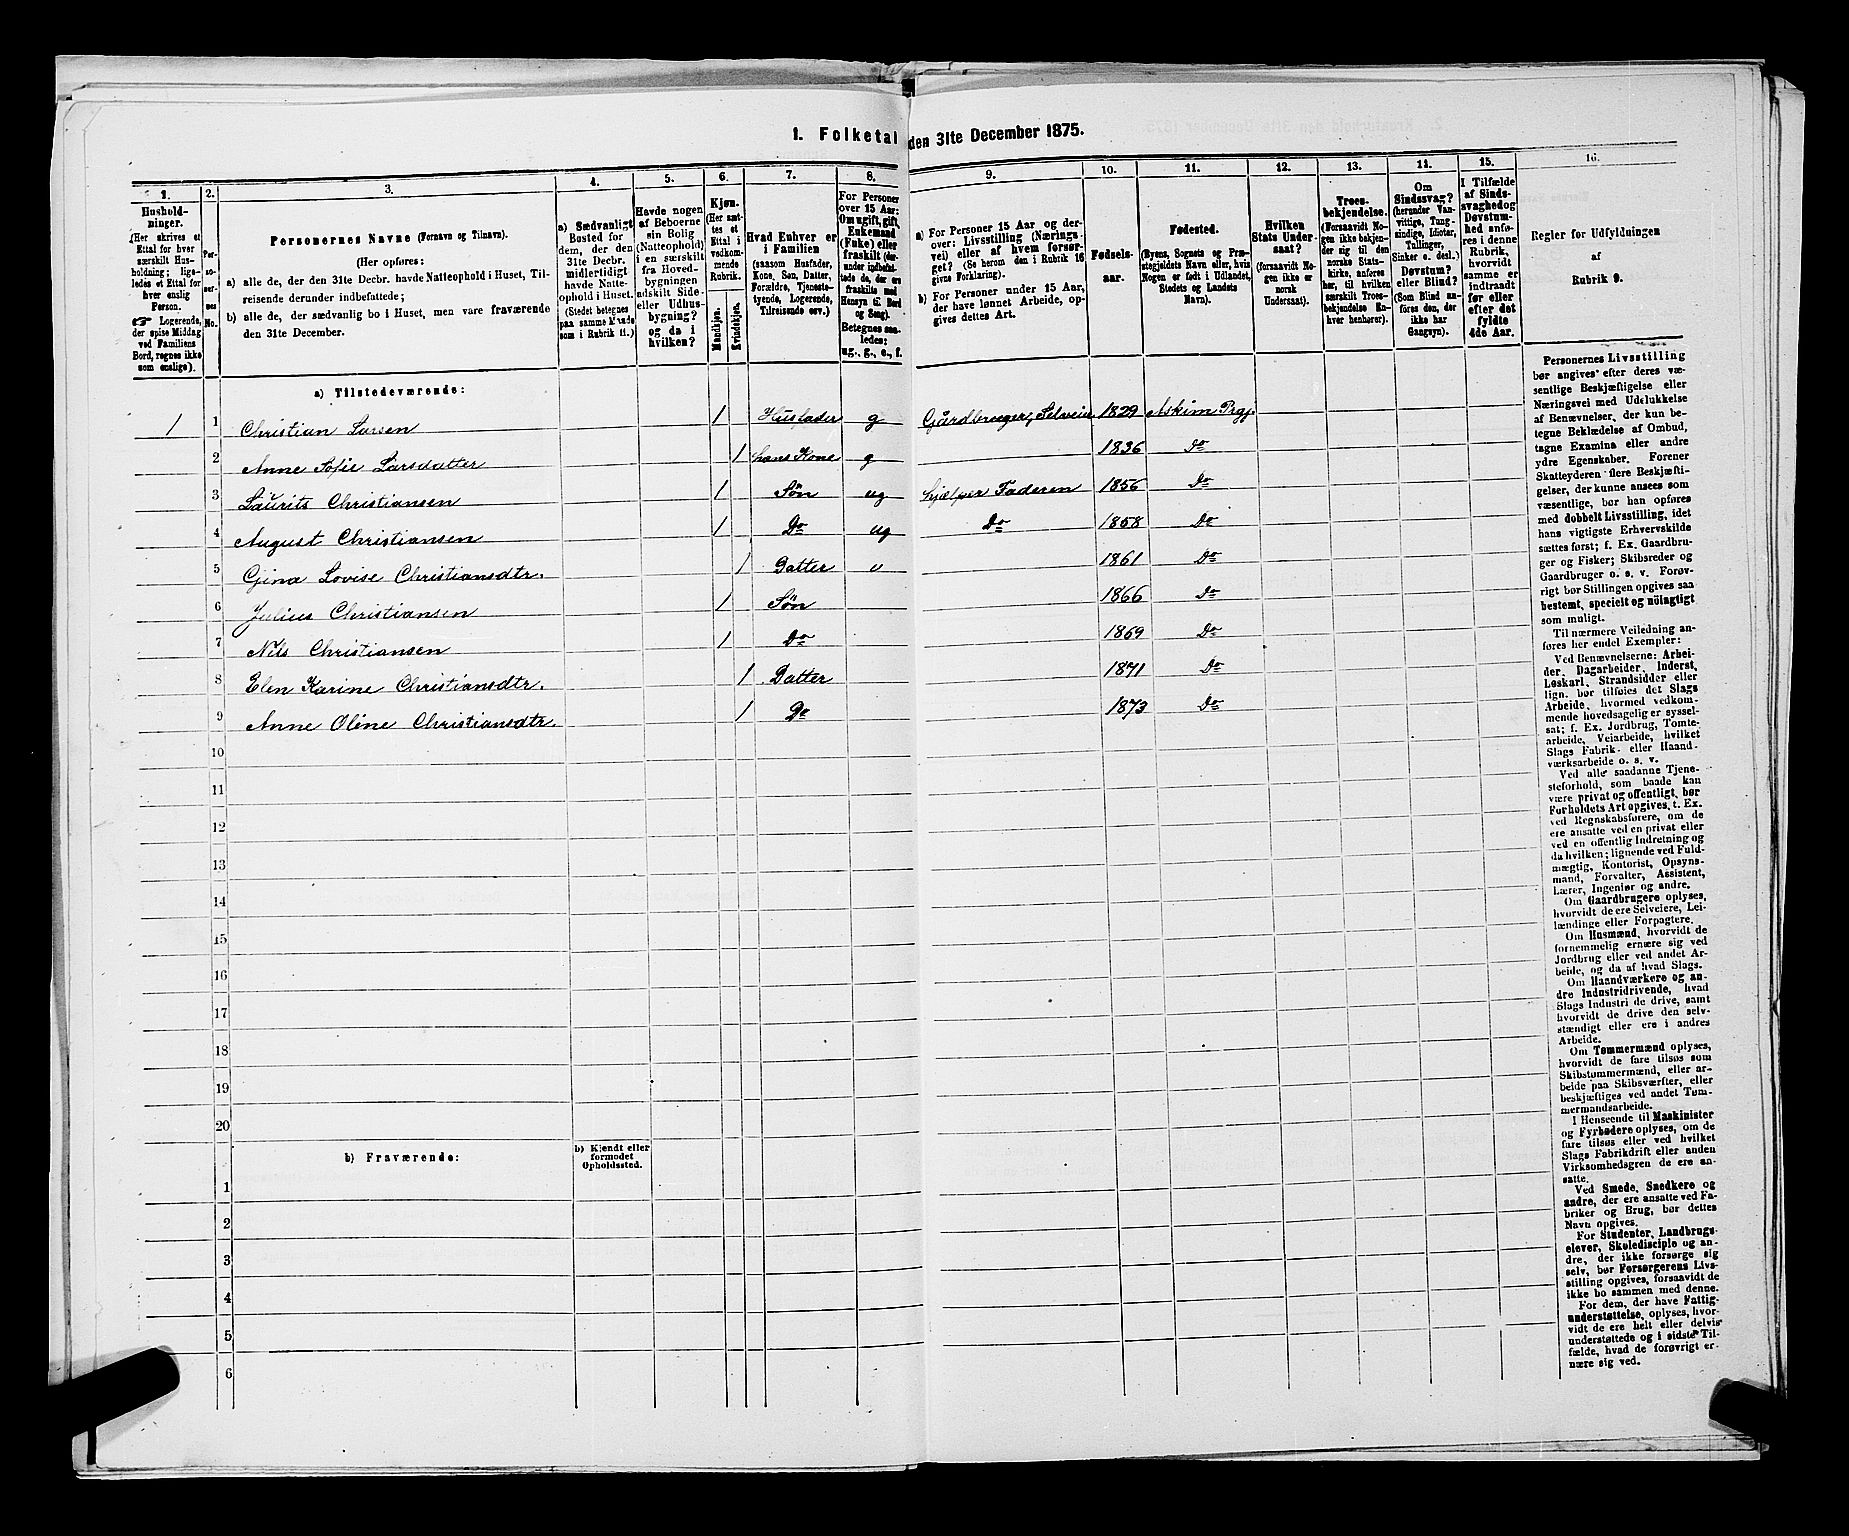 1. Folketal den 31te December 1875.
1. 2. 3. 4. 5. 6. 7. 8. 9. 10. 11. 12. 13. 14. 15. 16.
Hushold-
ninger.
(Her skrives et
Ettal for hver
særskilt Hus-
holdning; lige-
ledes et Ettal for
hver enslig
Person.
☞ Logerende,
der spise Middag
ved Familiens
Bord, regnes ikke
som enslige).
Per-
so-
ner-
nes
No.
Personernes Navne (Fornavn og Tilnavn).
(Her opføres:
a) alle de, der den 31te Decbr. havde Natteophold i Huset, Til-
reisende derunder indbefattede;
b) alle de, der sædvanlig bo i Huset, men vare fraværende
den 31te December.
a) Sædvanligt
Bosted for
dem, der den
31te Decbr.
midlertidigt
havde Natte-
ophold i Huset.
(Stedet betegnes
paa samme Maade
som i Rubrik 11.)
Havde nogen
af Beboerne
sin Bolig
(Natteophold)
i en særskilt
fra Hoved-
bygningen
adskilt Side-
eller Udhus-
bygning?
og da i
hvilken?
Kjøn.
(Her sæt-
tes et
Ettal i
vedkom-
mende
Rubrik.
Mandkjøn.
Kvindekjøn.
Hvad Enhver er
i Familien
(saasom Husfader,
Kone, Søn, Datter,
Forældre, Tjeneste-
tyende, Logerende,
Tilreisende osv.)
For Personer
over 15 Aar:
Om ugift, gift,
Enkemand
(Enke) eller
fraskilt (der-
under indbefat-
tede de, der ere
fraskilte med
Hensyn til Bord
og Seng).
Betegnes saa-
ledes:
ug., g., e., f.
a) For Personer 15 Aar og der-
over: Livsstilling (Nærings-
vei) eller af hvem forsør-
get? (Se herom den i Rubrik 16
givne Forklaring).
b) For Personer under 15 Aar,
der have lønnet Arbeide, op-
gives dettes Art.
Fødsels-
aar.
Fødested.
(Byens, Sognets og Præ-
stegjeldets Navn eller, hvis
Nogen er født i Udlandet,
Stedets og Landets
Navn).
Hvilken
Stats Under-
saat?
(forsaavidt No-
gen ikke er
norsk
Undersaat).
Troes-
bekjendelse.
(Forsaavidt No-
gen ikke bekjen-
der sig til den
norske Stats-
kirke, anføres
her, til hvilken
særskilt Troes-
bekjendelse En-
hver henhører).
Om
Sindssvag?
(herunder Van-
vittige, Tung-
sindige, Idioter,
Tullinger,
Sinker o. desl.)
Døvstum?
eller Blind?
(Som Blind an-
føres den, der
ikke har
Gangsyn).
I Tilfælde
af Sinds-
svaghed og
Døvstum-
hed anfø-
res i denne
Rubrik,
hvorvidt
samme er
indtraadt
før eller
efter det
fyldte
4de Aar.
Regler for Udfyldningen
af
Rubrik 9.
a) Tilstedeværende:
1 1 Christian Larsen 1 Husfader g Gårdbruger, Selveier 1829 Askim Prgj.
2 Anne Sofie Larsdatter 1 hans Kone g 1836 Do
3 Laurits Christiansen 1 Søn ug hjelper Faderen 1856 Do
4 August Christiansen 1 Do ug Do 1858 Do
5 Gina Lovise Christiansdtr. 1 Datter u 1861 Do
6 Julius Christiansen 1 Søn 1866 Do
7 Nils Christiansen 1 Do 1869 Do
8 Elen Karine Christiansdtr. 1 Datter 1871 Do
9 Anne Oline Christiansdtr 1 Do 1873 Do
10
11
12
13
14
15
16
17
18
19
20
b) Fraværende:
b) Kjendt eller
formodet
Opholdssted.
1
2
3
4
5
6
Personernes Livsstilling
bør angives efter deres væ-
sentlige Beskjæftigelse eller
Næringsvei med Udelukkelse
af Benævnelser, der kun be-
tegne Beklædelse af Ombud,
tagne Examina eller andre
ydre Egenskaber. Forener
Skatteyderen flere Beskjæfti-
gelser, der kunne ansees som
væsentlige, bør han opføres
med dobbelt Livsstilling, idet
hans vigtigste Erhvervskilde
sættes først; f. Ex. Gaardbru-
ger og Fisker; Skibsreder og
Gaardbruger o. s. v. Forøv-
rigt bør Stillingen opgives saa
bestemt, specielt og nöiagtigt
som muligt.
Til nærmere Veiledning an-
føres her endel Exempler:
Ved Benævnelserne: Arbei-
der, Dagarbeider, Inderst,
Løskarl, Strandsidder eller
lign. bør tilføies det Slags
Arbeide, hvormed vedkom-
mende hovedsagelig er syssel-
sat; f. Ex. Jordbrug, Tomte-
arbeide, Veiarbeide, hvilket
Slags Fabrik- eller Haand-
værksarbeide o. s. v.
Ved alle saadanne Tjene-
steforhold, som baade kan
være privat og offentligt, bør
Forholdets Art opgives, t. Ex.
ved Regnskabsførere, om de
ere ansatte ved en privat eller
ved en offentlig Indretning og
da hvilken; lignende ved Fuld-
mægtig, Kontorist, Opsyns-
mand, Forvalter, Assistent,
Lærer, Ingeniør og andre.
Om Gaardbrugere oplyses,
hvorvidt de ere Selveiere, Lei-
lændinge eller Forpagtere.
Om Husmænd, hvorvidt de
fornemmelig ernære sig ved
Jordbrug eller ved andet Ar-
beide, og da af hvad Slags.
Om Haandværkere og an-
dre Industridrivende, hvad
Slags Industri de drive, samt
hvorvidt de drive den selv-
stændigt eller ere i andres
Arbeide.
Om Tømmermænd oplyses,
hvorvidt de fare tilsøs som
Skibstømmermænd, eller ar-
beide paa Skibsværfter, eller
beskjæftiges ved andet Tøm-
mermandsarbeide.
I Henseende til Maskinister
og Fyrbødere oplyses, om de
fare tilsøs eller ved hvilket
Slags Fabrikdrift eller anden
Virksomhedsgren de ere an-
satte.
Ved Smede, Snedkere og
andre, der ere ansatte ved Fa-
briker og Brug, bør dettes
Navn opgives.
For Studenter, Landbrugs-
elever, Skoledisciple og an-
dre, der ikke forsørge sig
selv, bør Forsørgerens Livs-
stilling opgives, forsaavidt de
ikke bo sammen med denne.
For dem, der have Fattig-
understøttelse, oplyses, hvor-
vidt de ere helt eller delvis
understøttede og i sidste Til-
fælde, hvad de forøvrigt er-
nære sig ved.